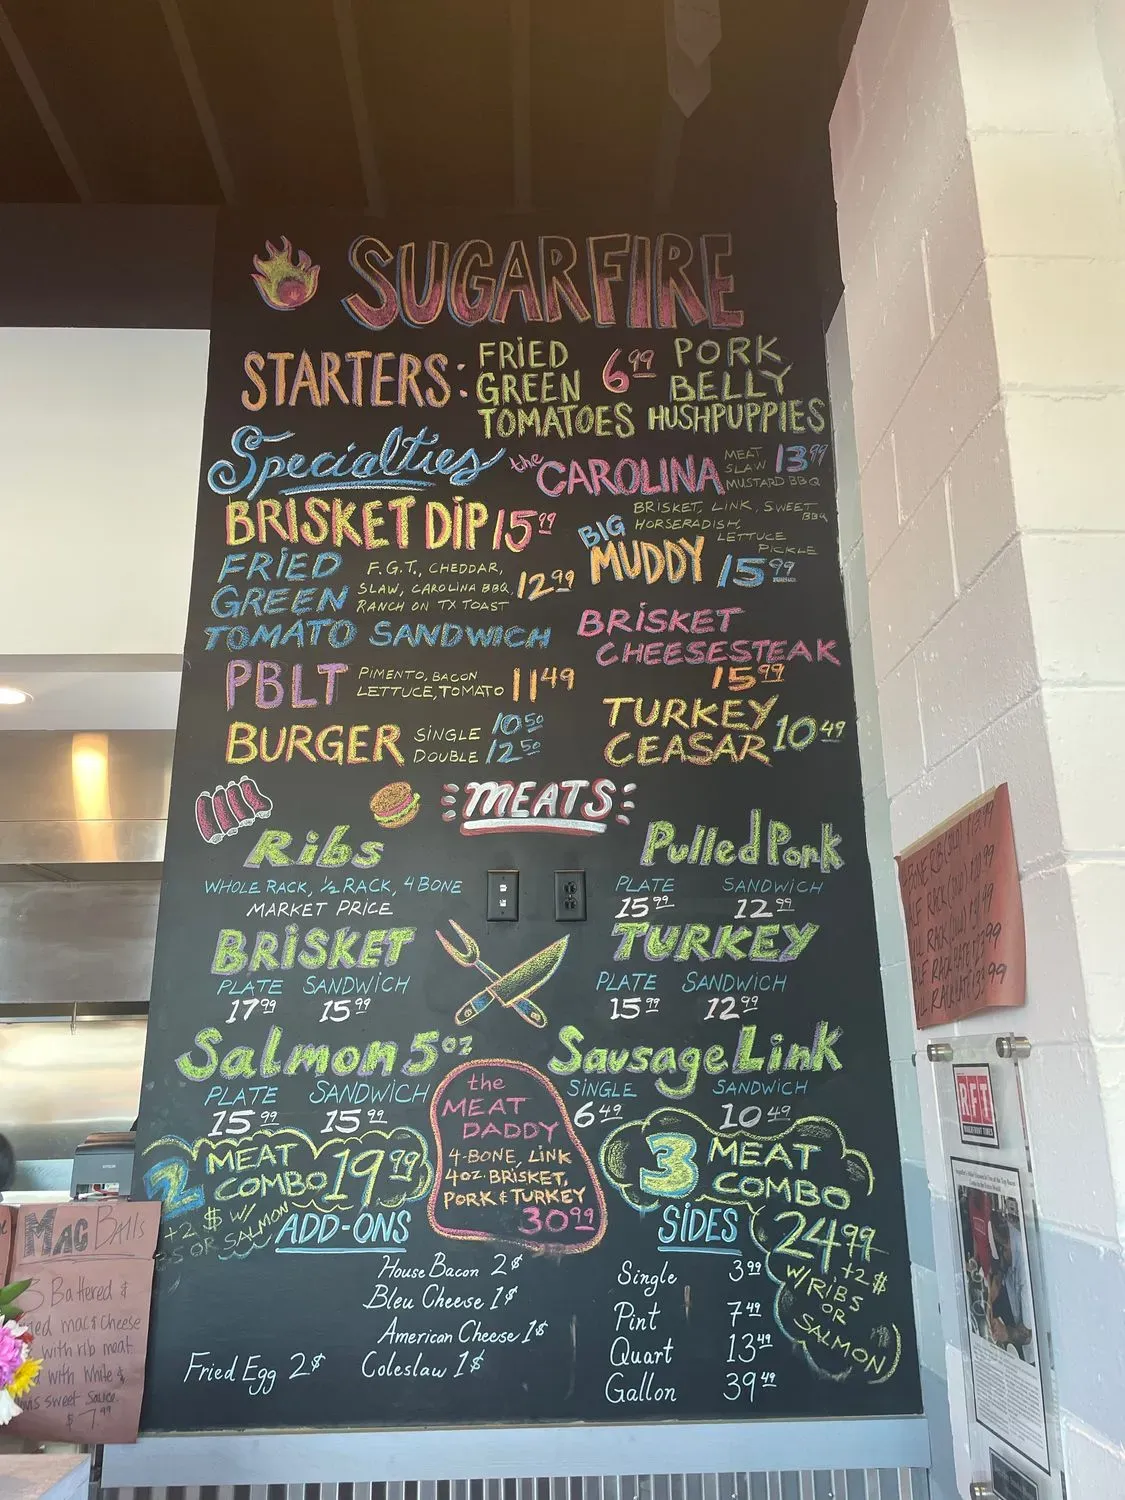 SUGARFIRE
STARTERS: FRIED GREEN TOMATOES 6.99 PORK BELLY HUSHPUPPIES
Specialties
the CAROLINA MEAT SLAW MUSTARD BBQ 13.99
BRISKET DIP 15.99
BIG MUDDY BRISKET, LINK, SWEET BBQ HORSERADISH, LETTUCE PICKLE 15.99
FRIED GREEN TOMATO SANDWICH
F.G.T., CHEDDAR,
SLAW, CAROLINA BBQ,
RANCH ON TX TOAST
12.99
BRISKET
CHEESESTEAK
15.99
PBLT PIMENTO, BACON LETTUCE, TOMATO 11.49
TURKEY
CEASAR 10.49
BURGER SINGLE 10.50
DOUBLE 12.50
MEATS
Ribs
WHOLE RACK, 1/2 RACK, 4 BONE
MARKET PRICE
Pulled Pork
PLATE SANDWICH
15.99 12.99
BRISKET
PLATE SANDWICH
17.99 15.99
TURKEY
PLATE SANDWICH
15.99 12.99
Salmon 5oz
PLATE SANDWICH
15.99 15.99
Sausage Link
SINGLE SANDWICH
6.49 10.49
2 MEAT
COMBO 19.99
+2 $ W/
OR SALMON
the
MEAT
DADDY
4-BONE, LINK
4oz. BRISKET,
PORK & TURKEY
30.99
3 MEAT
COMBO
24.99
+2 $
W/RIBS
OR
SALMON
ADD-ONS
House Bacon 2$
Bleu Cheese 1$
American Cheese 1$
Fried Egg 2$ Coleslaw 1$
SIDES
Single 3.99
Pint 7.49
Quart 13.49
Gallon 39.49
MAC Balls
3 Battered &
mac & Cheese
with rib meat
with White &
sweet Sauce.
$7.99
RFT
RIVERFRONT TIMES